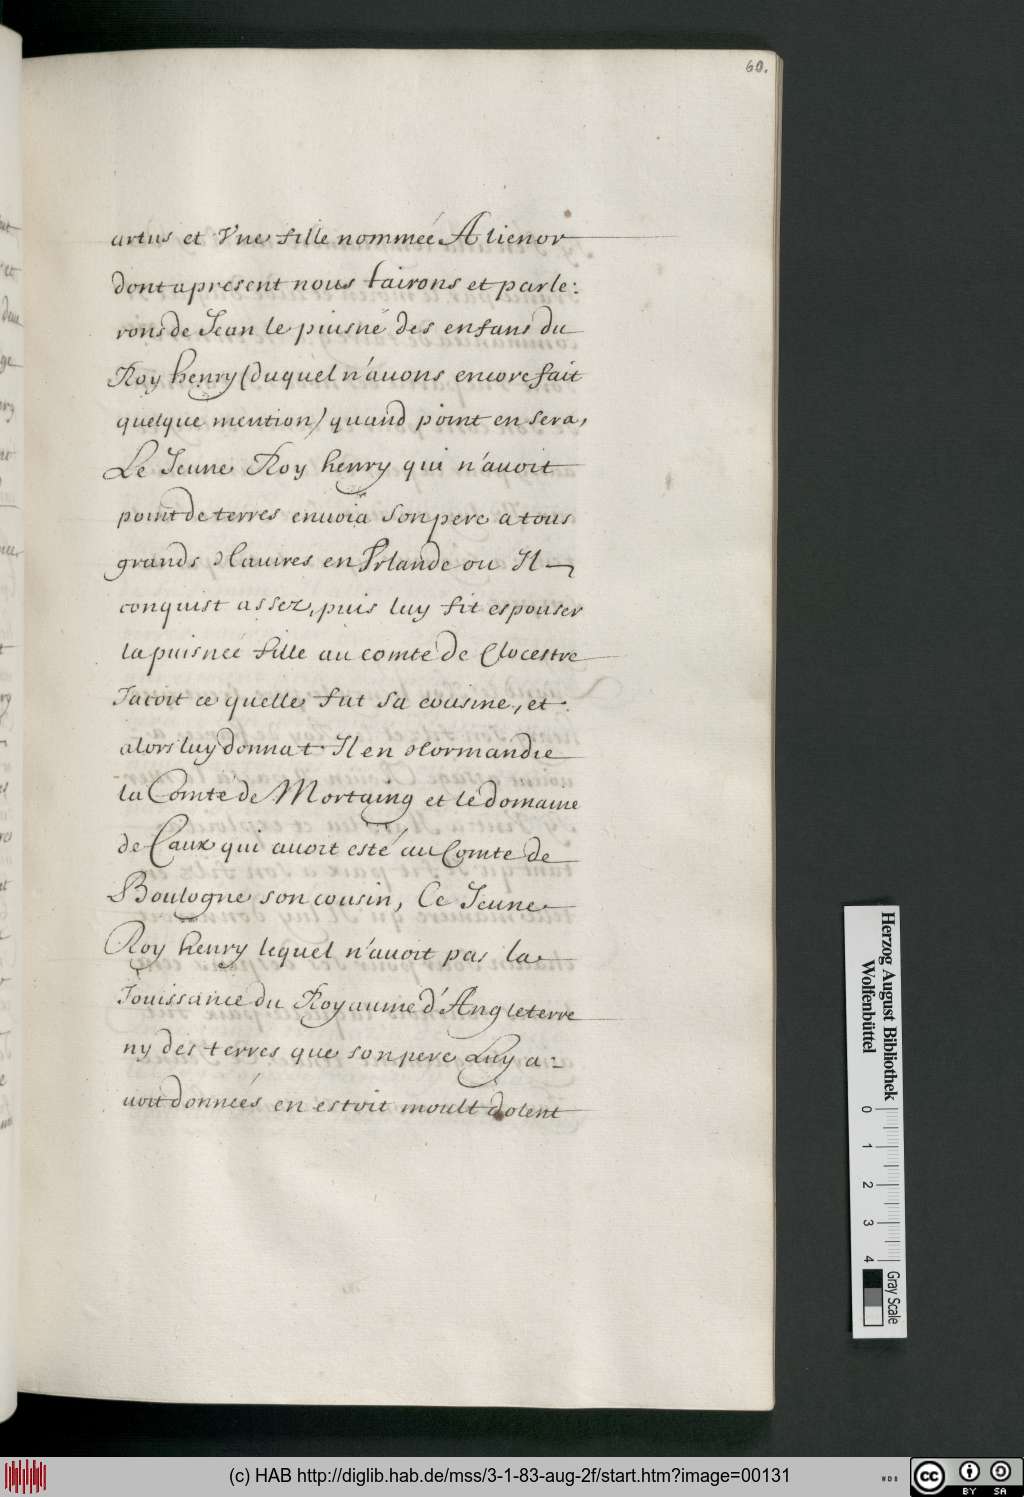 60.
artus et Vne fille nommeé Alienor
dont apresent nous tairons et parle:
rons de Jean le puisné des enfans du
Roy henry (duquel n'auons encore fait
quelque mention) quand point en sera,
Le Jeune Roy henry qui n'auoit
point de terres enuoïa son pere a tous
grands Nauires en Irlande ou Il
conquist assez, puis luy fit espouser
la puisneé fille au comte de Clocestre
Jacoit ce quelle fut sa cousine, et
alors luy donna t Il en Normandie
la Comté de Mortaing et le domaine
de Caux qui auoit esté au Comte de
Boulogne son cousin, Ce Jeune
Roy henry lequel n'auoit pas la
Jouissance du Royaume d'Angleterre
ny des terres que son pere Luy a:
uoit donneés en estoit moult dolent
Herzog August Bibliothek
Wolfenbüttel
0 1 2 3 4
Gray Scale
(c) HAB http://diglib.hab.de/mss/3-1-83-aug-2f/start.htm?image=00131
WDB
cc BY SA